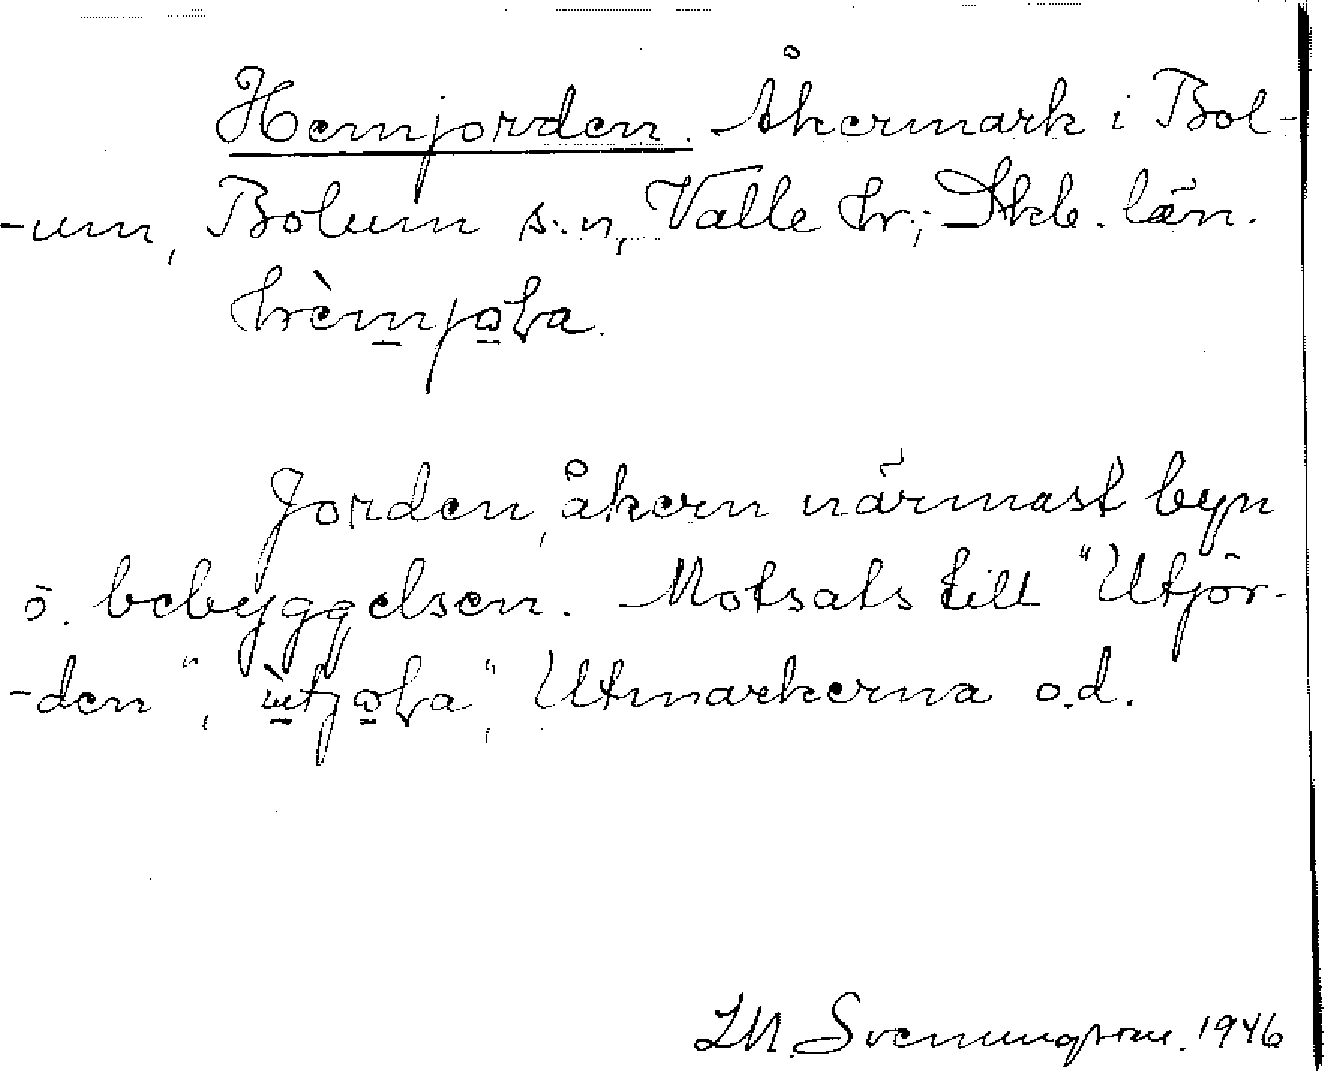 Hemjorden. Åkermark i Bol-
-um, Bolum s:n, Valle hr; Skb. län.
hèmjoḷa.
Jorden, åkern närmast byn
o. bebyggelsen. Motsats till "Utjor-
-den", ùtjoḷa", Utmarkerna o.d.
Svenungsson. 1946